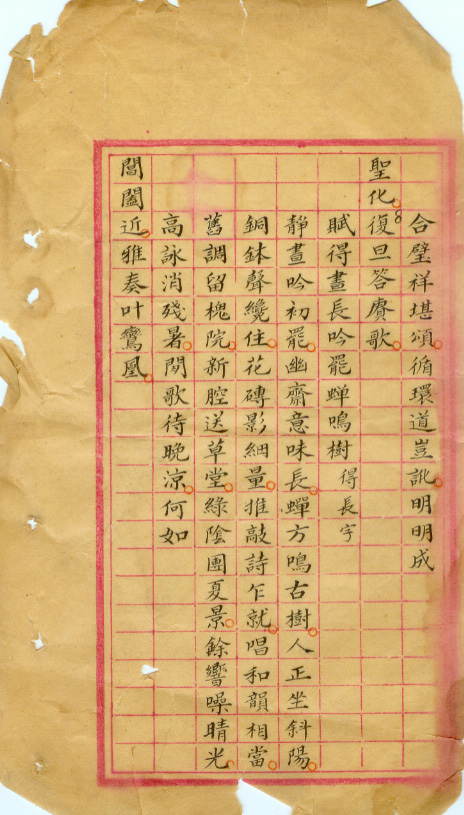 合璧祥堪頌循環道豈訛明明成
聖化復旦答賡歌
賦得晝長吟罷蟬鳴樹得長字
靜晝吟初罷幽齋意味長蟬方鳴古樹人正坐斜陽
銅鉢聲纔住花磚影細量推敲詩乍就唱和韻相當
舊調留槐院新腔送草堂綠陰團夏景餘響噪晴光
高詠消殘暑閒歌待晚涼何如
閶闔近雅奏叶鸞凰